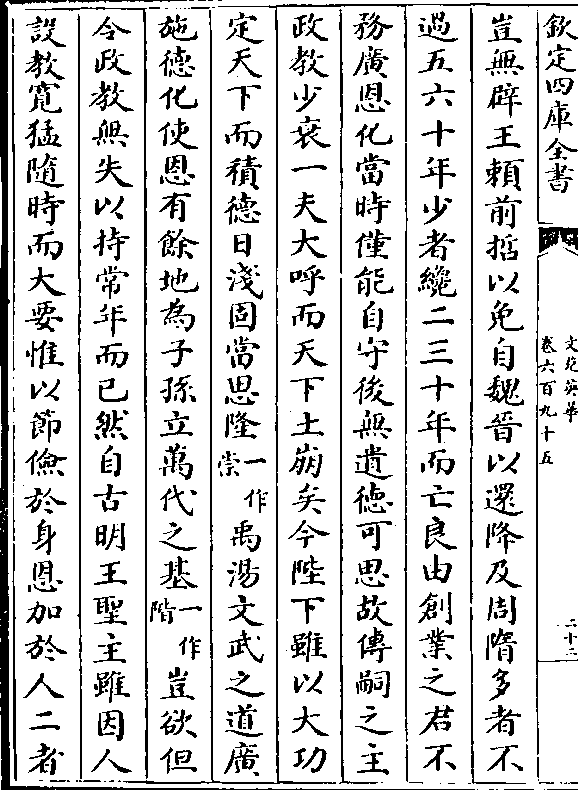 欽定四庫全書
文苑英華
卷六百九十五
二十二
豈無辟王賴前哲以免自魏晉以還降及周隋多者不
過五六十年少者纔二三十年而亡良由創業之君不
務廣恩化當時僅能自守後無遺德可思故傳嗣之主
政教少衰一夫大呼而天下土崩矣今陛下雖以大功
定天下而積德日淺固當思隆一作崇禹湯文武之道廣
施德化使恩有餘地為子孫立萬代之基一作階豈欲但
令政教無失以持當年而已然自古明王聖主雖因人
設教寛猛隨時而大要惟以節儉於身恩加於人二者